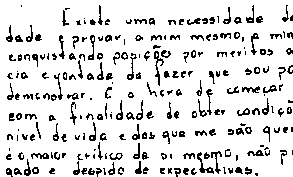 Existe uma necessidade de
dade e provar, a mim mesmo, a min
conquistando posições por meritos a
cia e vontade de fazer que sou po
demonstrar. É o hora de começar
com a finalidade de obter condiçõ
nivel de vida e dos que me são quer
é o maior critico de si mesmo, não pr
gado e despido de expectativas.